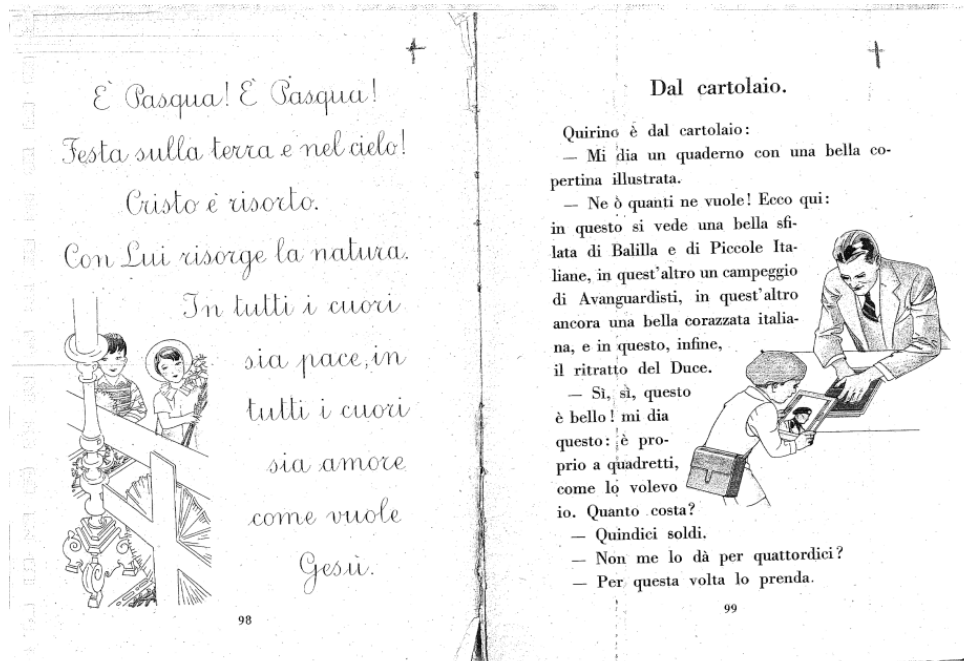 È Pasqua! È Pasqua!
Festa sulla terra e nel cielo!
Cristo è risorto.
Con Lui risorge la natura.
In tutti i cuori
sia pace, in
tutti i cuori
sia amore
come vuole
Gesù.
98
Dal cartolaio.
Quirino è dal cartolaio:
— Mi dia un quaderno con una bella co-
pertina illustrata.
— Ne ò quanti ne vuole! Ecco qui:
in questo si vede una bella sfi-
lata di Balilla e di Piccole Ita-
liane, in quest'altro un campeggio
di Avanguardisti, in quest'altro
ancora una bella corazzata italia-
na, e in questo, infine,
il ritratto del Duce.
— Sì, sì, questo
è bello! mi dia
questo: è pro-
prio a quadretti,
come lo volevo
io. Quanto costa?
— Quindici soldi.
— Non me lo dà per quattordici?
— Per questa volta lo prenda.
99